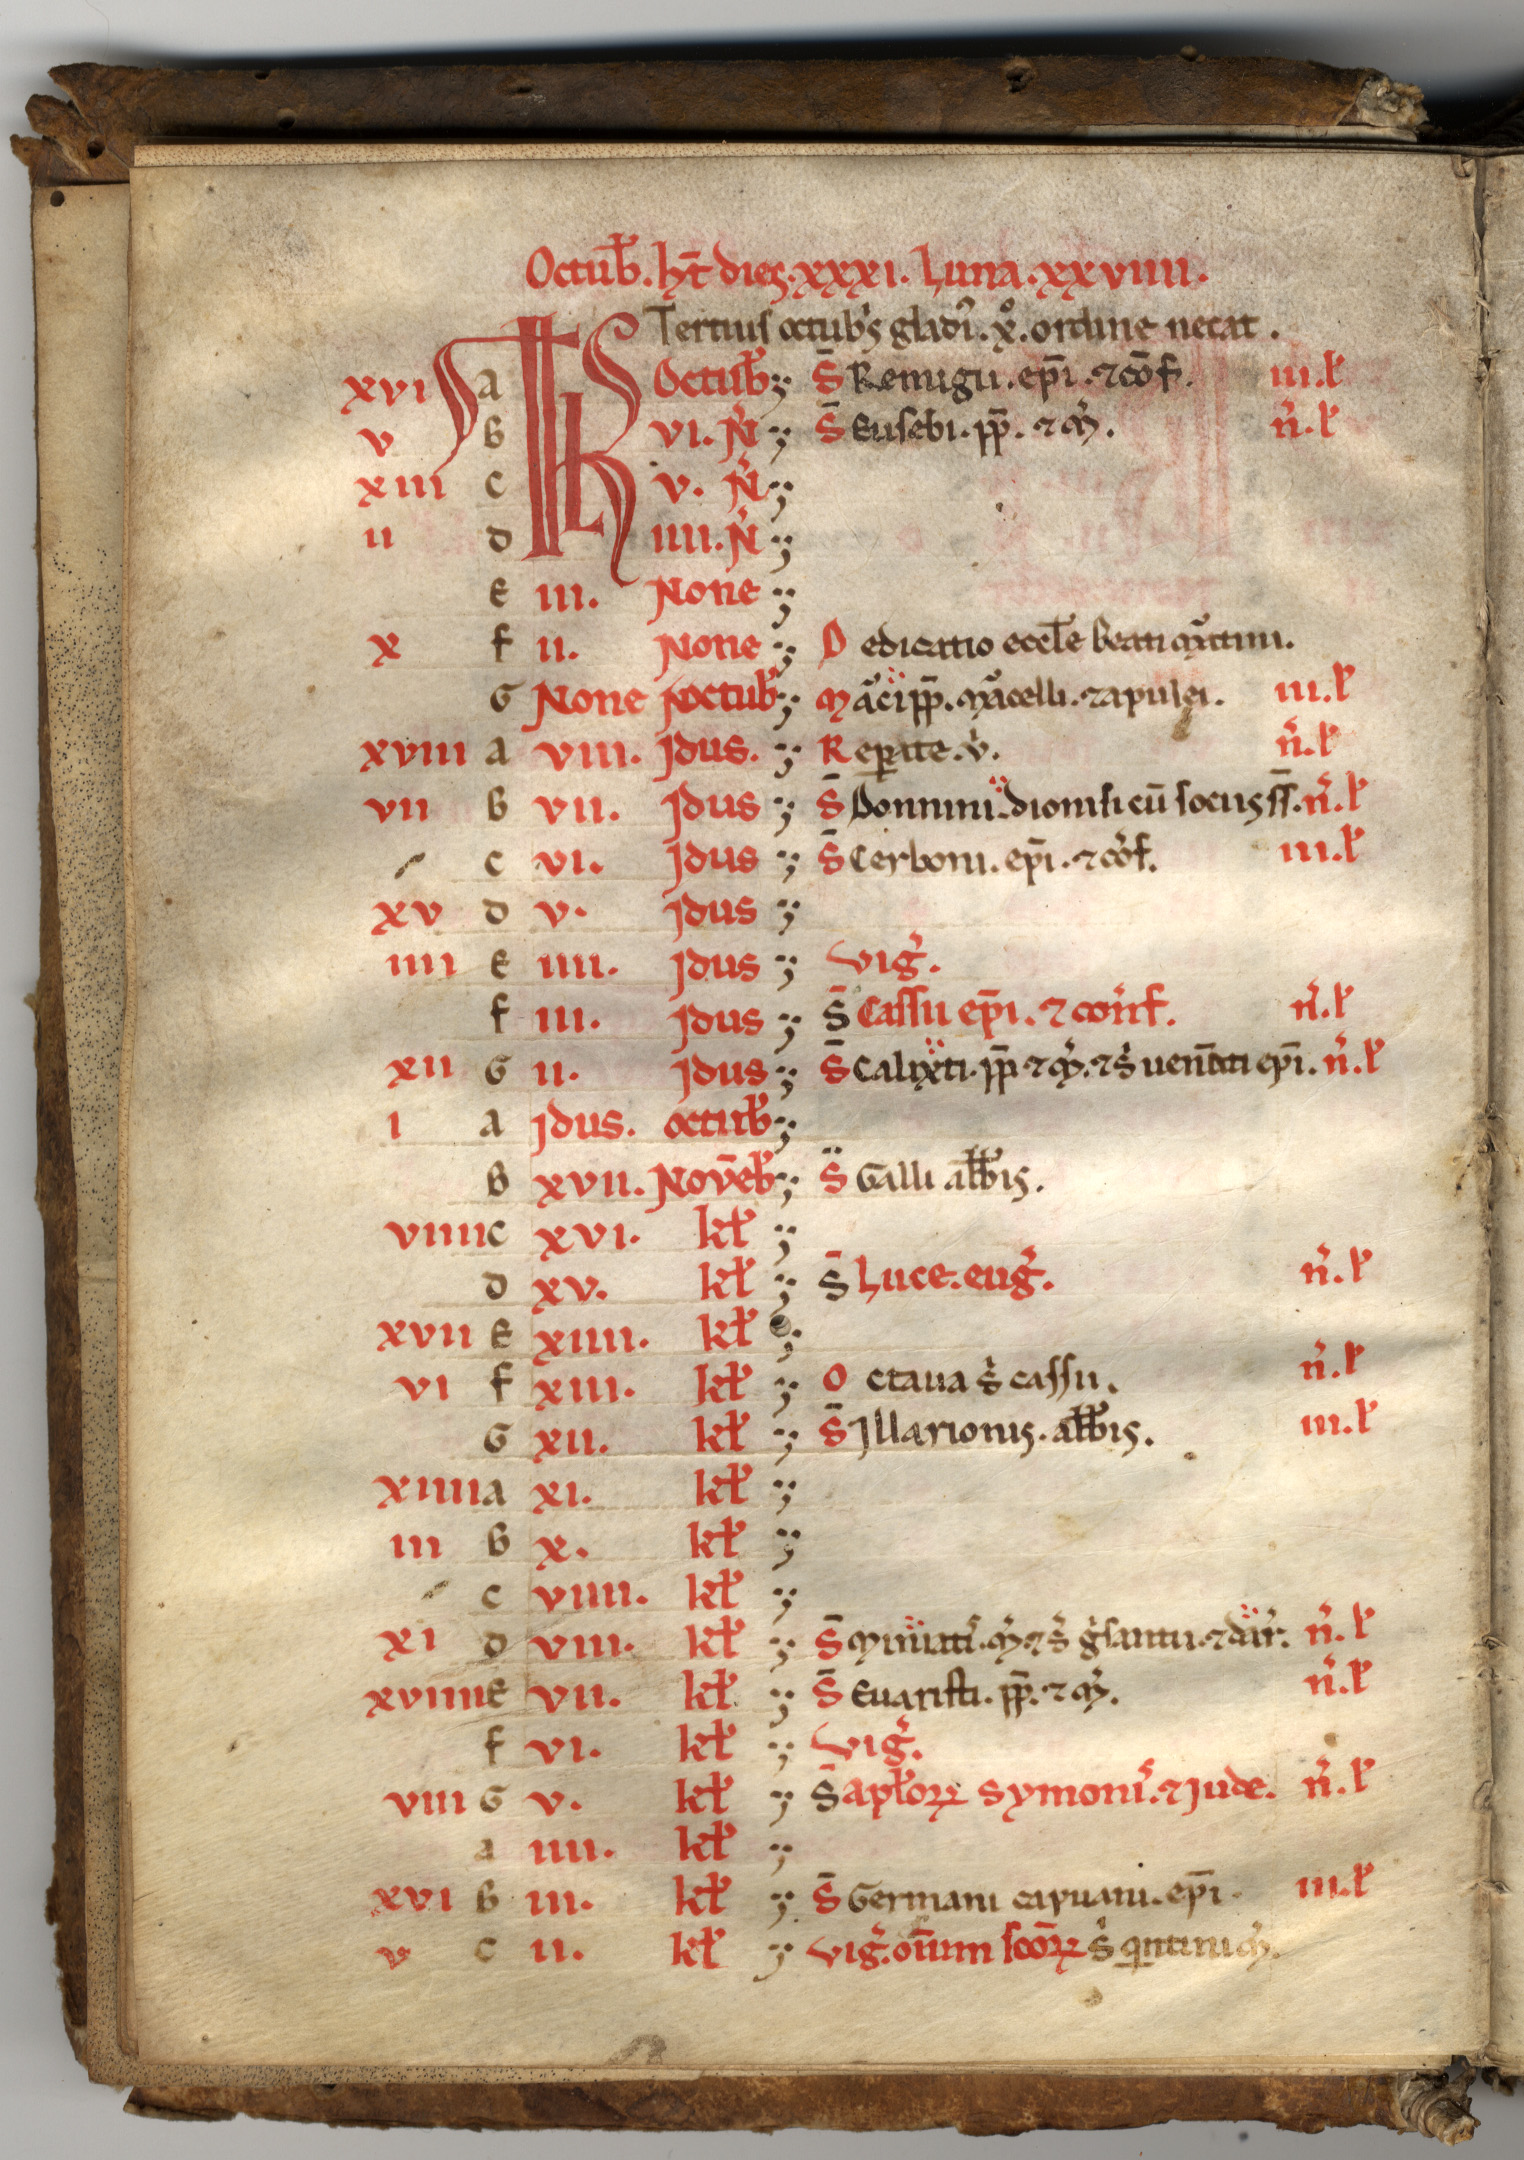 Octub̄. h̄t dies. xxxi. Luna. xxviiii.
Tertius octub's gladi'. x°. ordine necat.
xvi a KL Octub'; S̄ Remigii. ep̄i. ⁊ cōf. iii. l'
v b vi. N̄; S̄ Eusebi. pp̄. ⁊ m̄. n̄. l'
xiii c v. N̄;
ii d iiii. N̄;
e iii. None;
x f ii. None; Dedicatio eccl'e beati martini.
G None octub'; Marci pp̄. marcelli. ⁊ apulei. iii. l'
xviii a viii. Jdus.; Reparate. v'.
n̄. l'
vii b vii. Jdus; S̄ Donnini. dionisii cū sociis ss̄. n̄. l'
c vi. Jdus; S̄ Cerboni. ep̄i. ⁊ cōf. iii. l'
xv d v. Jdus;
iiii e iiii. Jdus; vig'.
f iii. Jdus; S̄ Cassii ep̄i. ⁊ conf. n̄. l'
xii G ii. Jdus; S̄ Calixti. pp̄. ⁊ m̄. ⁊ s' uenāti ep̄i. n̄. l'
i a Jdus. octub';
b xvii. Novēb'; S̄ Galli abb̄is.
viiii c xvi. kl';
d xv. kl'; S̄ Luce. eug'. n̄. l'
xvii e xiiii. kl';
vi f xiii. kl'; Octaua s' cassii. n̄. l'
G xii. kl'; S̄ Jllarionis. abb̄is. iii. l'
xiiii a xi. kl';
iii b x. kl';
c viiii. kl';
xi d viii. kl'; S̄ Miniati'. m̄. ⁊ s' g'santii. ⁊ dar'. n̄. l'
xviiii e vii. kl'; S̄ Euaristi. pp̄. ⁊ m̄. n̄. l'
f vi. kl'; vig'.
viii G v. kl'; S̄ apl'oꝝ Symoni'. ⁊ Jude. n̄. l'
a iiii. kl';
xvi b iii. kl'; S̄ Germani capuani. ep̄i. iii. l'
v c ii. kl'; vig'. om̄ium sc̄oꝝ s' qintini m̄.